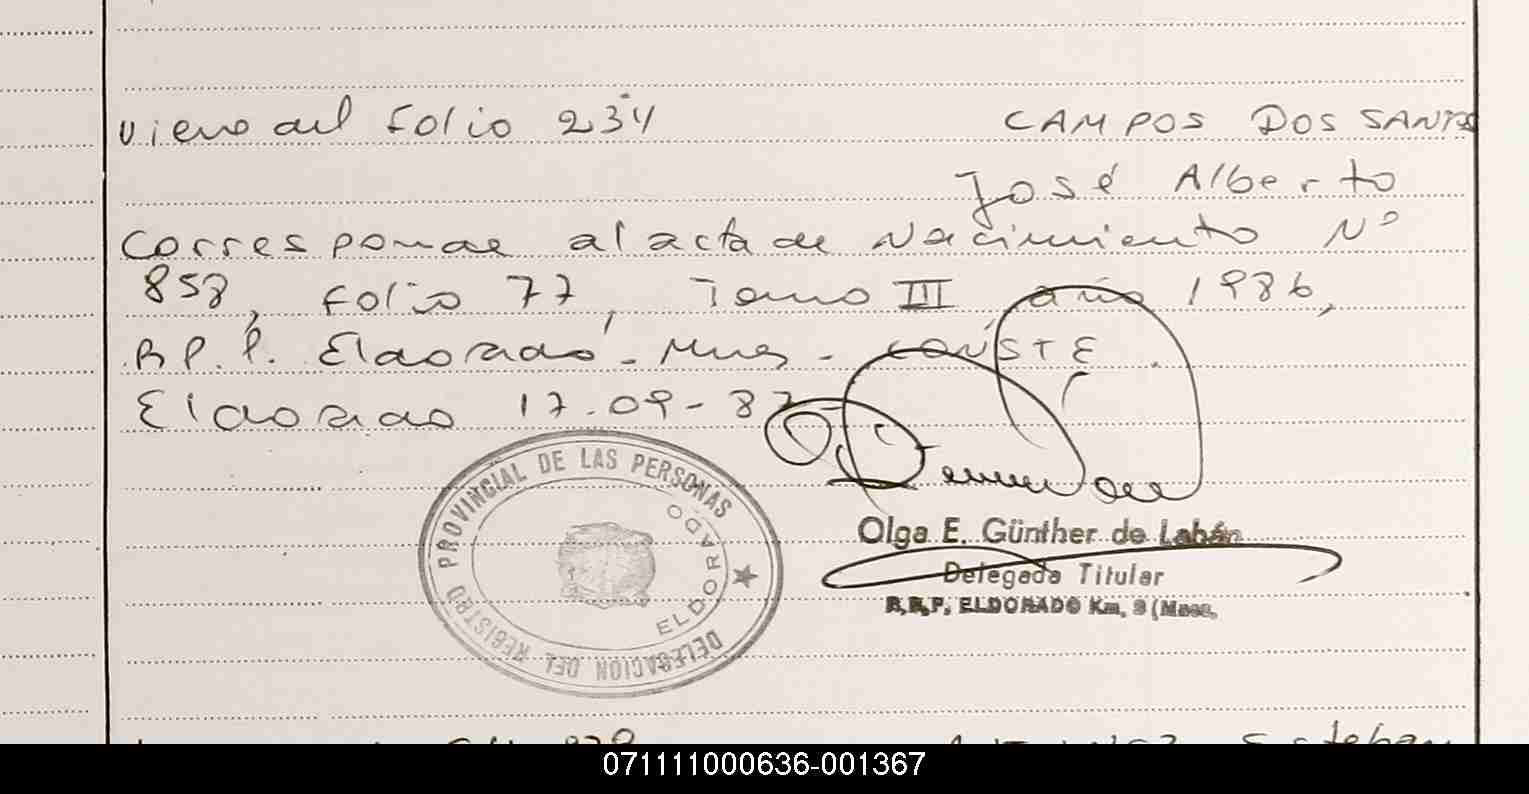 viene del Folio 234 CAMPOS DOS SANTOS
José Alberto
Corresponde al acta de Nacimiento Nº
858, Folio 77, Tomo III año 1986,
R.P.P. Eldorado - Mnes - CONSTE.
Eldorado 17-09-87
DELEGACION DEL REGISTRO PROVINCIAL DE LAS PERSONAS
ELDORADO
Olga E. Günther de Labán
Delegada Titular
R.R.P. ELDORADO Km. 9 (Mnes.
Esteban
071111000636-001367